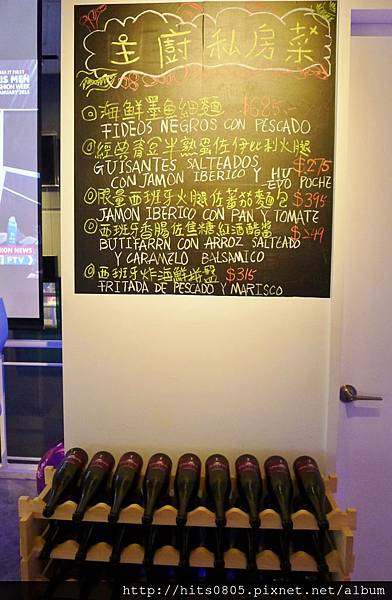 主廚私房菜
海鮮墨魚細麵 $685.-
FIDEOS NEGROS CON PESCADO
經典青豆半熟蛋佐伊比利火腿
GUISANTES SALTEADOS $275
CON JAMÓN IBERICO Y HU
EVO POCHE
限量西班牙火腿佐蕃茄麵包 $395
JAMON IBERICO CON PAN Y TOMATE
西班牙香腸佐焦糖紅酒醋醬 $249
BUTIFARRN CON ARROZ SALTEADO
Y CARAMELO BALSAMICO
西班牙炸海鮮拼盤 $315
FRITADA DE PESCADO Y MARISCO
IS MEN
FASHION WEEK
JANUARY 2013
FASHION NEWS
FTV
http://hits0805.pixnet.net/album